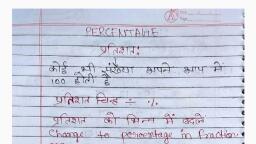 PERCENTANE
प्रतिशत:
कोई भी संख्या अपने आप में
100 होती है
प्रतिशत चिन्ह ÷ %
प्रतिशत को भिन्न में बदलने
Change to percentage in fraction